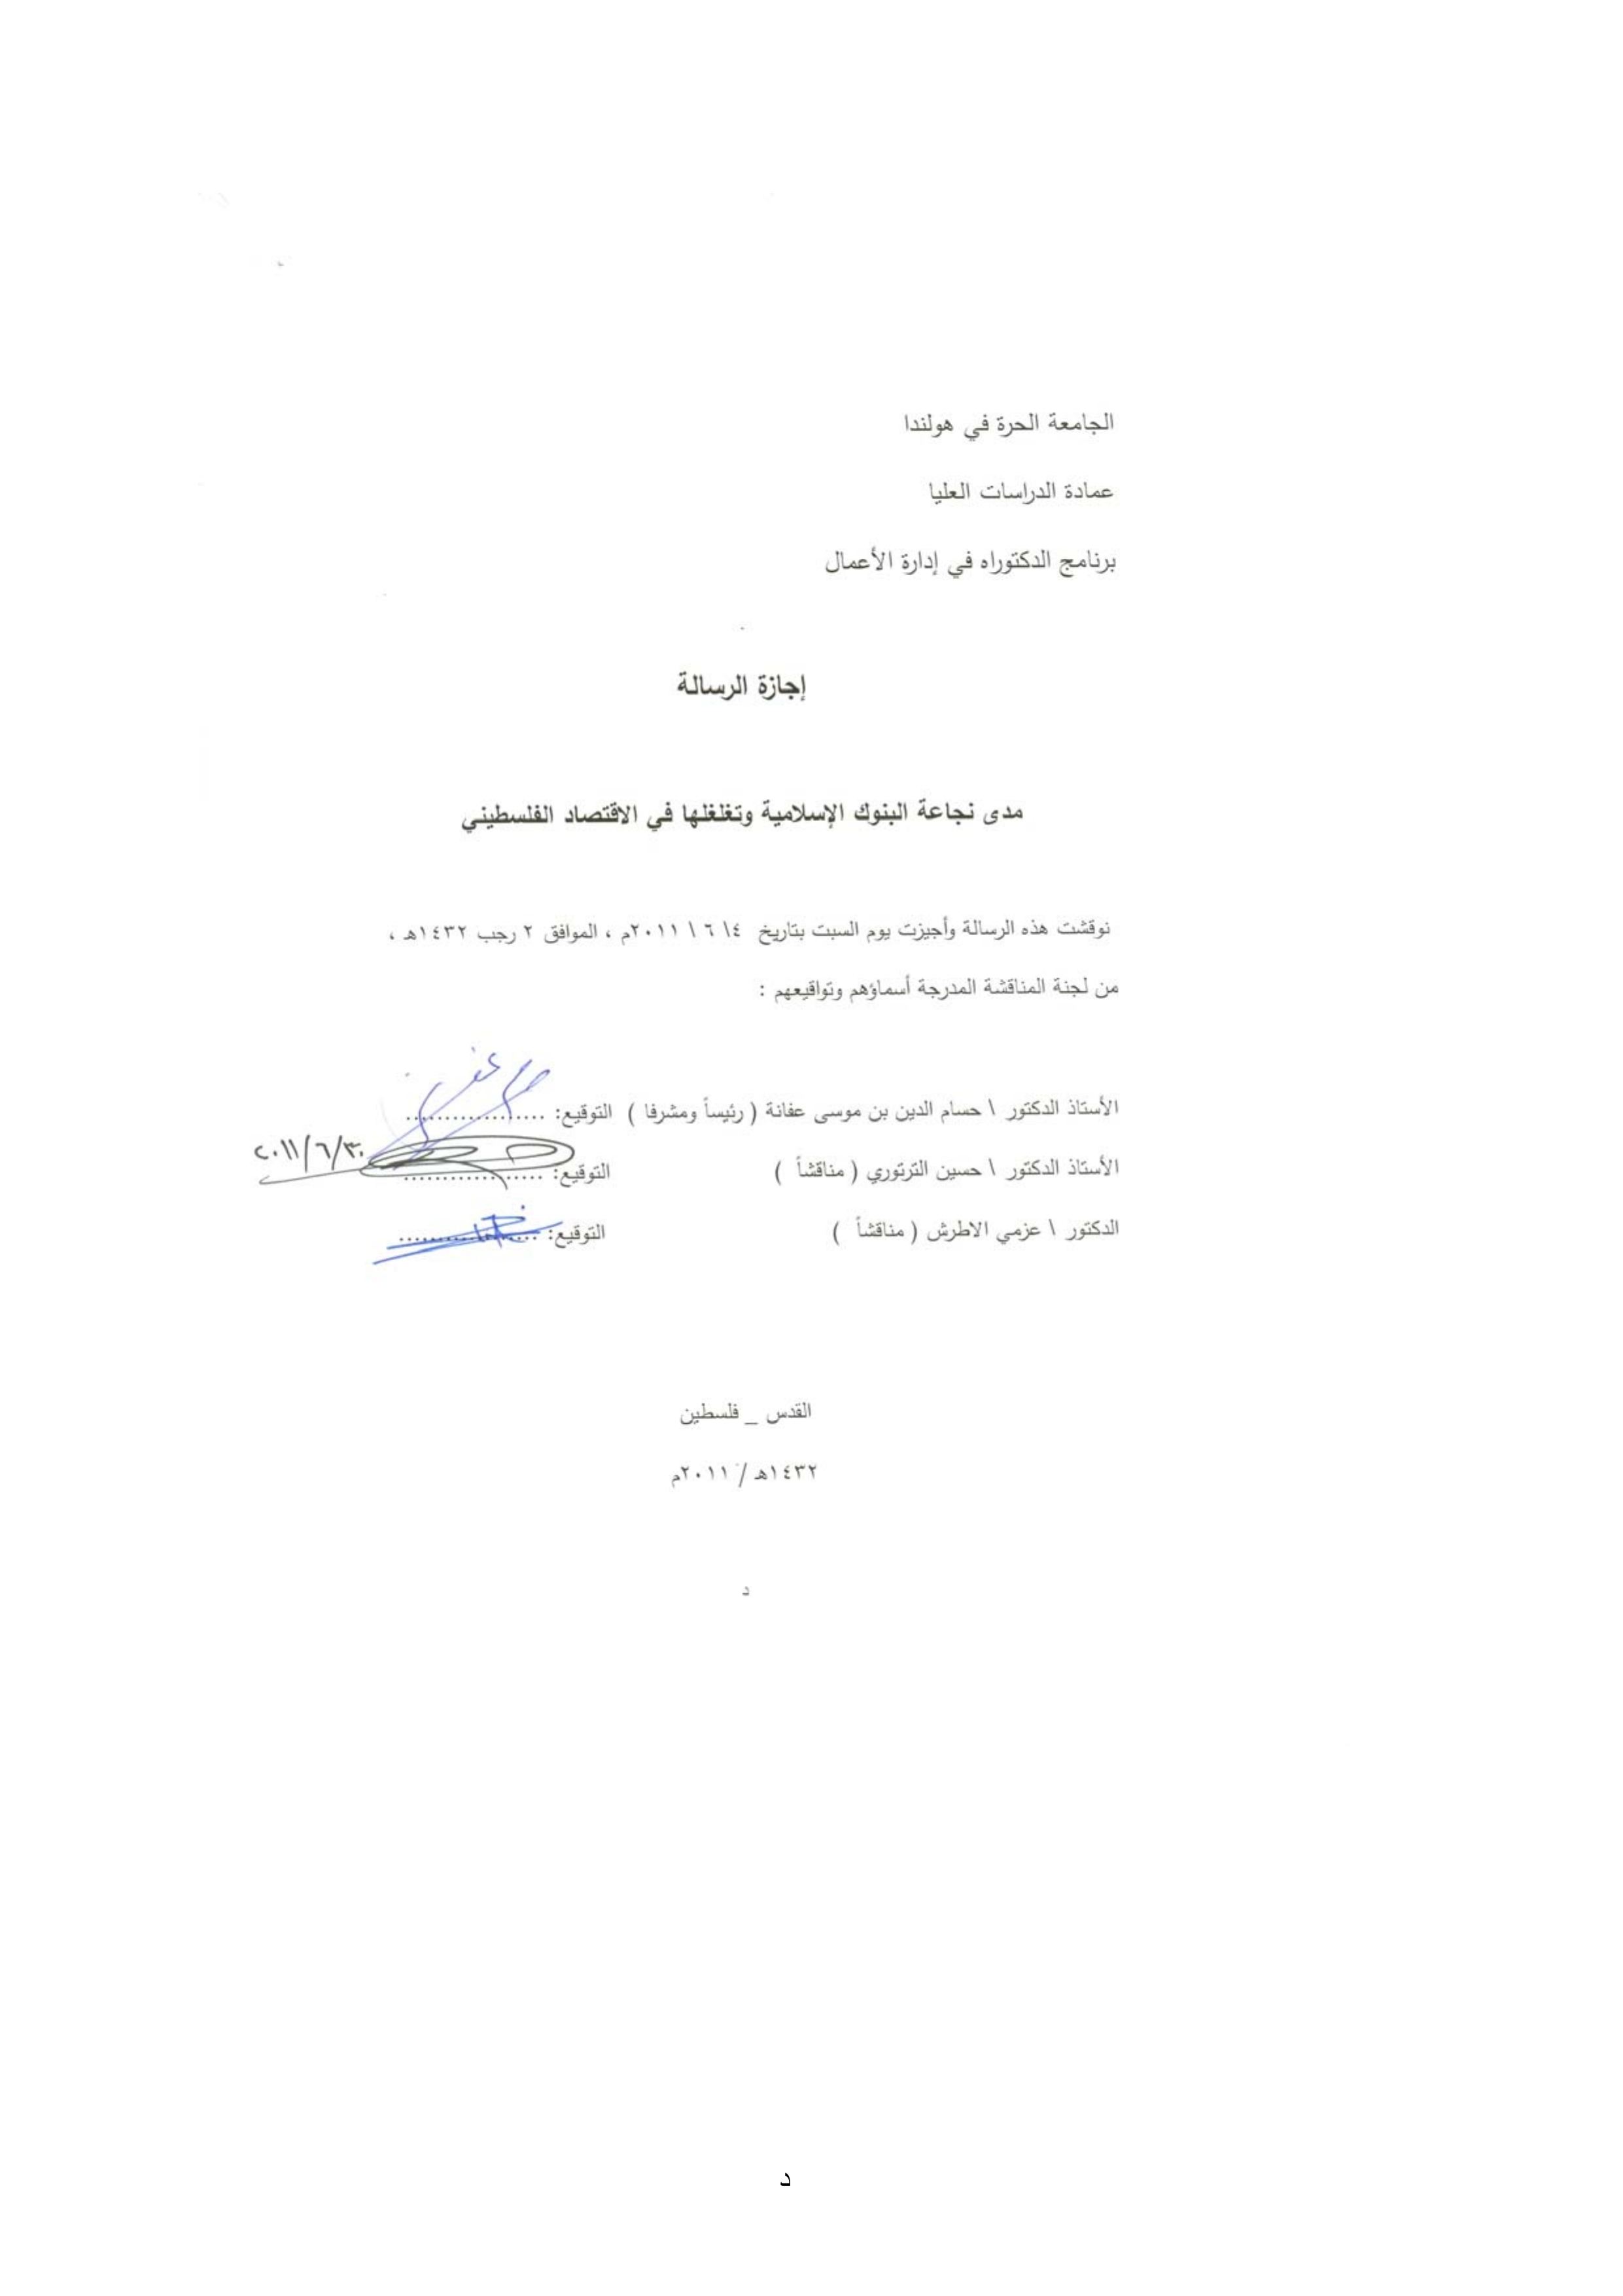 الجامعة الحرة في هولندا
عمادة الدراسات العليا
برنامج الدكتوراه في إدارة الأعمال
إجازة الرسالة
مدى نجاعة البنوك الإسلامية وتغلغلها في الاقتصاد الفلسطيني
نوقشت هذه الرسالة وأجيزت يوم السبت بتاريخ ٤\ ٦ \ ٢٠١١م ، الموافق ٢ رجب ١٤٣٢هـ ،
من لجنة المناقشة المدرجة أسماؤهم وتواقيعهم :
الأستاذ الدكتور \ حسام الدين بن موسى عفانة ( رئيساً ومشرفا ) التوقيع: ..................
الأستاذ الدكتور \ حسين الترتوري ( مناقشاً ) التوقيع: .................. ٢٠١١/٦/٣٠
الدكتور \ عزمي الاطرش ( مناقشاً ) التوقيع: ..................
القدس _ فلسطين
١٤٣٢هـ / ٢٠١١م
د
د